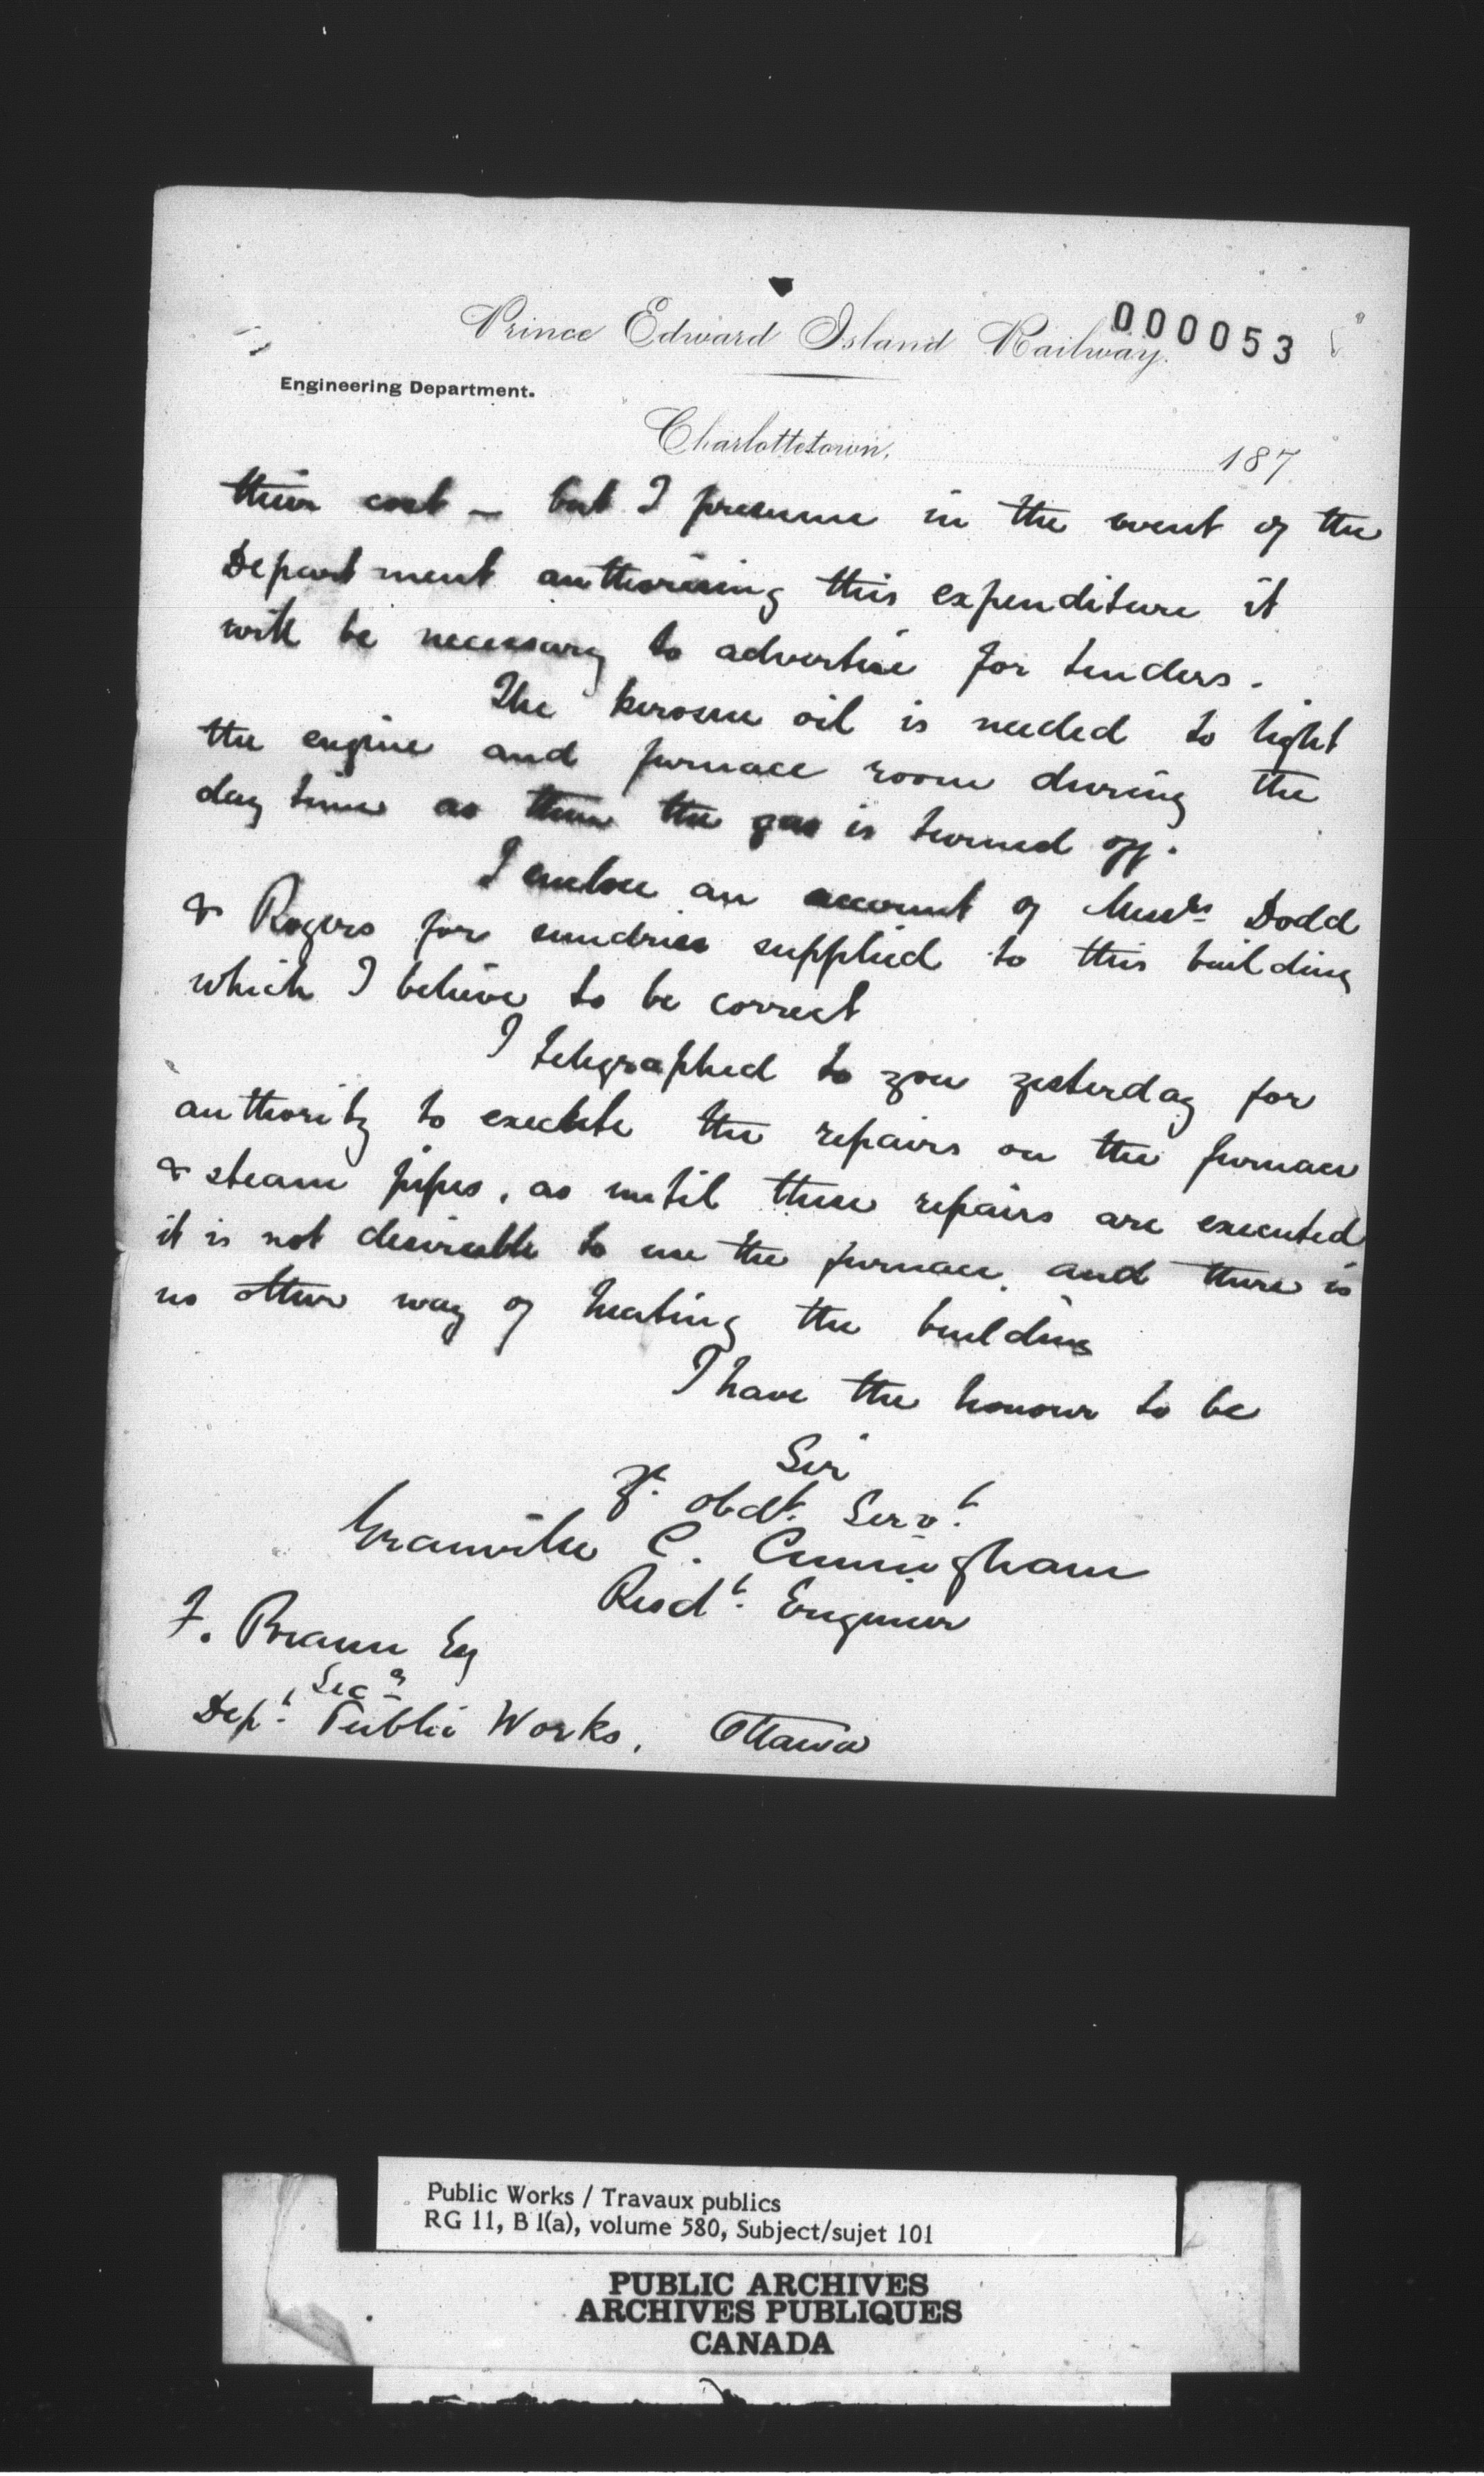 000053
Prince Edward Island Railway.
Engineering Department.
Charlottetown, 187
their cost – but I presume in the event of the
Department authorising this expenditure it
will be necessary to advertise for tenders.
The kerosene oil is needed to light
the engine and furnace room during the
day time as then the gas is turned off.
I enclose an account of Messrs Dodd
& Rogers for sundries supplied to this building
which I believe to be correct
I telegraphed to you yesterday for
authority to execute the repairs on the furnace
& steam pipes, as until these repairs are executed
it is not desirable to use the furnace and there is
no other way of heating the building
I have the honour to be
Sir
Yr. obdt. Servt.
Granville C. Cunningham
Resdt. Engineer
F. Braun Esq
Secy
Dept. Public Works, Ottawa
Public Works / Travaux publics
RG 11, B 1(a), volume 580, Subject/sujet 101
PUBLIC ARCHIVES
ARCHIVES PUBLIQUES
CANADA